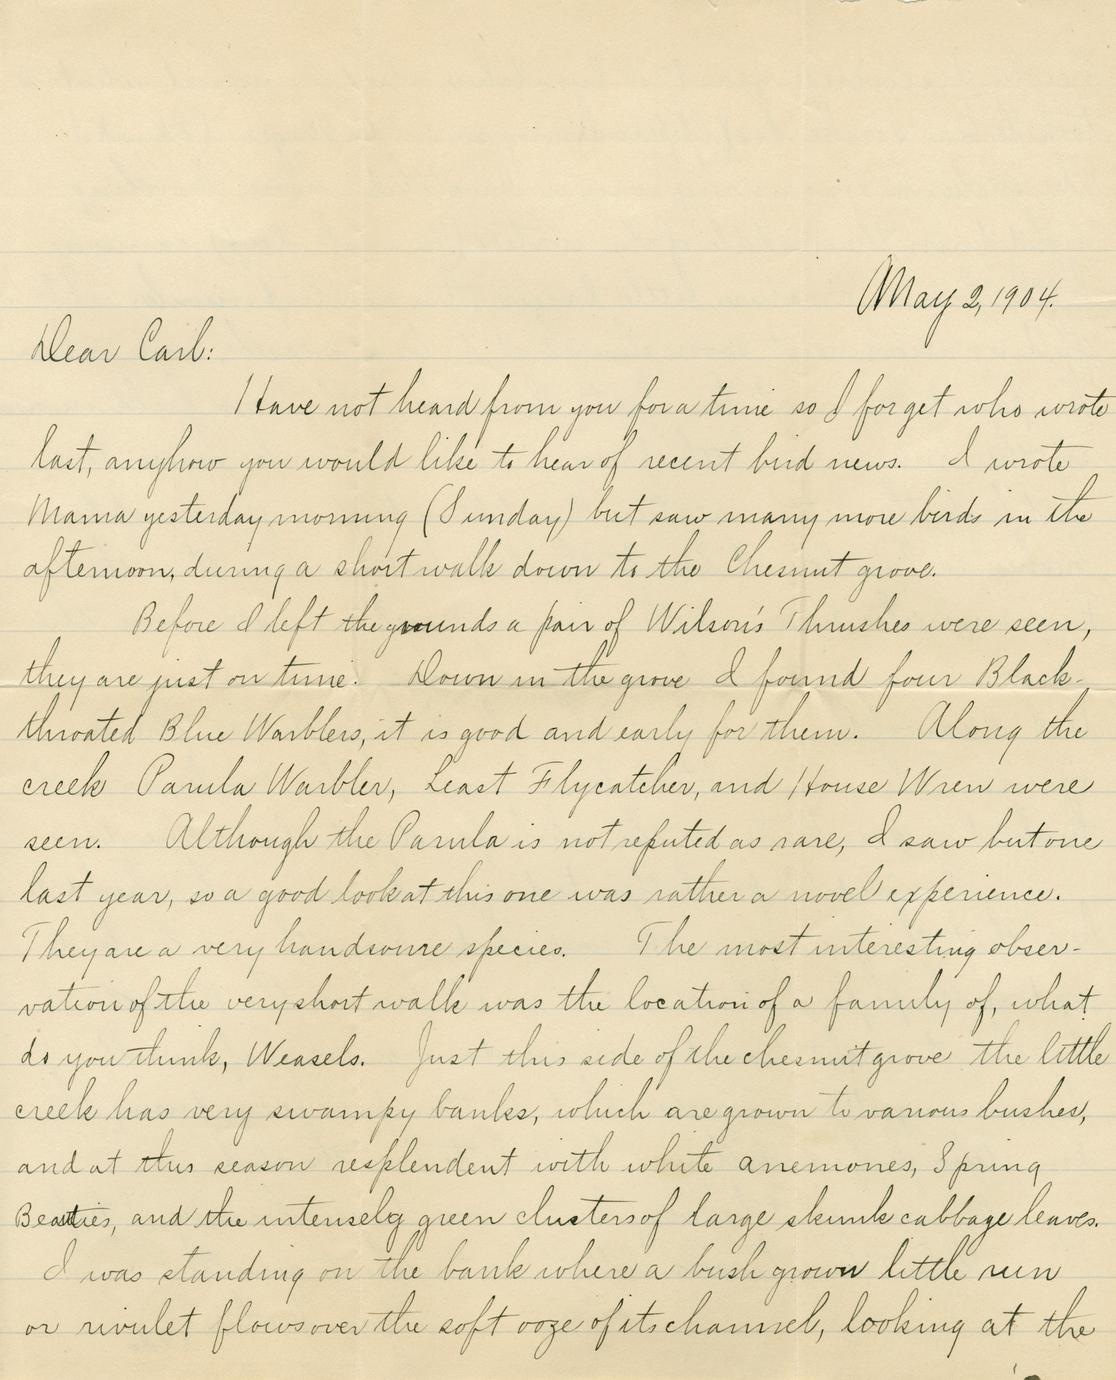 May 2, 1904.
Dear Carl:
Have not heard from you for a time so I forget who wrote
last, anyhow you would like to hear of recent bird news. I wrote
Mama yesterday morning (Sunday) but saw many more birds in the
afternoon, during a short walk down to the Chesnut grove.
Before I left the grounds a pair of Wilson's Thrushes were seen,
they are just on time. Down in the grove I found four Black-
throated Blue Warblers, it is good and early for them. Along the
creek Parula Warbler, Least Flycatcher, and House Wren were
seen. Although the Parula is not reputed as rare, I saw but one
last year, so a good look at this one was rather a novel experience.
They are a very handsome species. The most interesting obser-
vation of the very short walk was the location of a family of, what
do you think, Weasels. Just this side of the chesnut grove the little
creek has very swampy banks, which are grown to various bushes,
and at this season resplendent with white anemones, Spring
Beauties, and the intensely green clusters of large skunk cabbage leaves.
I was standing on the bank where a bush grown little run
or rivulet flows over the soft ooze of its channel, looking at the